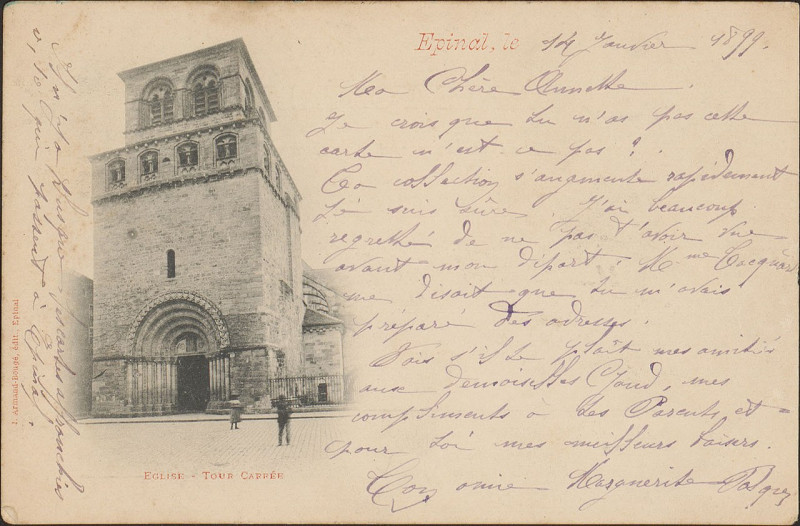 Epinal, le 14 Janvier 1899.
Ma Chère Annette.
Je crois que tu n'as pas cette
carte n'est-ce pas ?
Ta collection s'augmente rapidement
j'en suis sûre. J'ai beaucoup
regretté de ne pas t'avoir vue
avant mon départ ; Mme Cocquard
me disait que tu m'avais
préparé des adresses.
Fais s'il te plaît mes amitiés
aux demoiselles, mes
compliments à tes Parents et
pour toi mes meilleurs baisers.
Ton amie Marguerite
Il n'y a que cartes affranchies
à 0,10 qui passent à Epinal.
J. Armand-Rougé, édit., Epinal
EGLISE - TOUR CARRÉE